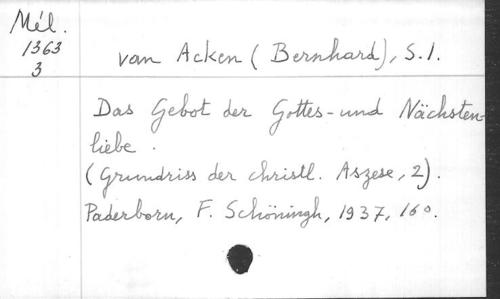 Mél.
1363
3
van Acken (Bernhard), S.I.
Das Gebot der Gottes- und Nächsten-
liebe.
(Grundriss der christl. Aszese, 2).
Paderborn, F. Schöningh, 1937, 16°.